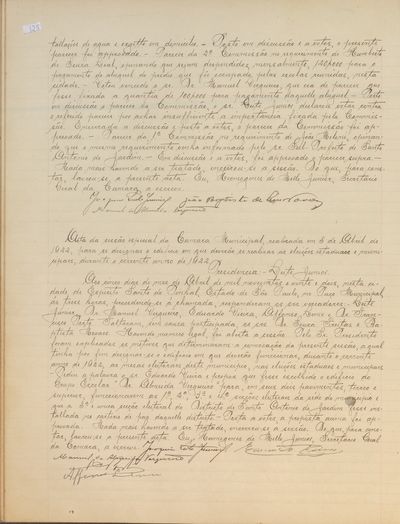 125
tallação de agua e exgotto em domicilio. - Posto em discussão e a votos, o presente
parecer foi approvado. - Parecer da 2ª Commissão no requerimento de Humberto
de Souza Leal, opinando que sejam despendidos, mensalmente,
pagamento do aluguel do predio que foi occupado pelas escolas reunidas, nesta
cidade. - Votou vencido o sr. Dr. Manuel Vergueiro, que era de parecer que
fosse fixada a quantia de para pagamento daquelle aluguel. - Posto
em discussão o parecer da Commissão, o sr. Leite Junior declarou votar contra
o referido parecer por achar insufficiente a importancia fixada pela Commis-
são. Encerrada a discussão e posto a votos, o parecer da Commissão foi ap-
provado. - Parecer da 1ª Commissão no requerimento de opinan-
do que o mesmo requerimento venha informado pelo sr. Sub-Prefeito de Santo
Antonio do Jardim. - Em discussão e a votos, foi approvado o parecer supra. -
Nada mais havendo a ser tratado, encerrou-se a sessão. Do que, para cons-
tar, lavrou-se a presente acta. Eu, Junior, Secretario
Geral da Camara, a escrevi.
Acta da sessão especial da Camara Municipal, realizada em 5 de Abril de
1922, para se designar o edificio em que deverão se realizar as eleições estadoaes e muni-
cipaes, durante o corrente anno de 1922.
Presidencia - Leite Junior.
Aos cinco dias do mez de Abril de mil novecentos e vinte e dois, nesta ci-
dade de Espirito Santo do Pinhal, Estado de São Paulo, no Paço Municipal,
ás treze horas, procedendo-se á chamada, responderam os srs. vereadores: Leite
Junior, Dr. Manuel Vergueiro, Eduardo Vieira, e Dr. Fran-
cisco
Havendo numero legal, foi aberta a sessão. Pelo Sr. Presidente
foram explicados os motivos que determinaram a convocação da presente sessão, a qual
tinha por fim designar-se o edificio em que deverão funccionar, durante o corrente
anno de 1922, as mesas eleitoraes deste municipio, nas eleições estadoaes e municipaes.
- Pediu a palavra o sr. Eduardo Vieira e propoz que fosse escolhido o edificio do
Grupo Escolar "Dr. Almeida Vergueiro" para, em seus dois pavimentos, terreo e
superior, funccionarem as 1ª, 2ª, 3ª e 4ª secções eleitoraes da séde do municipio e
que a 5ª e unica secção eleitoral do districto de Santo Antonio do Jardim fosse ins-
tallada no cartorio de paz daquelle districto. - Posta a votos, a proposta acima foi ap-
provada. - Nada mais havendo a ser tratado, encerrou-se a sessão. Do que, para cons-
tar, lavrou-se a presente acta. Eu, Junior, Secretario Geral
da Camara, a escrevi.